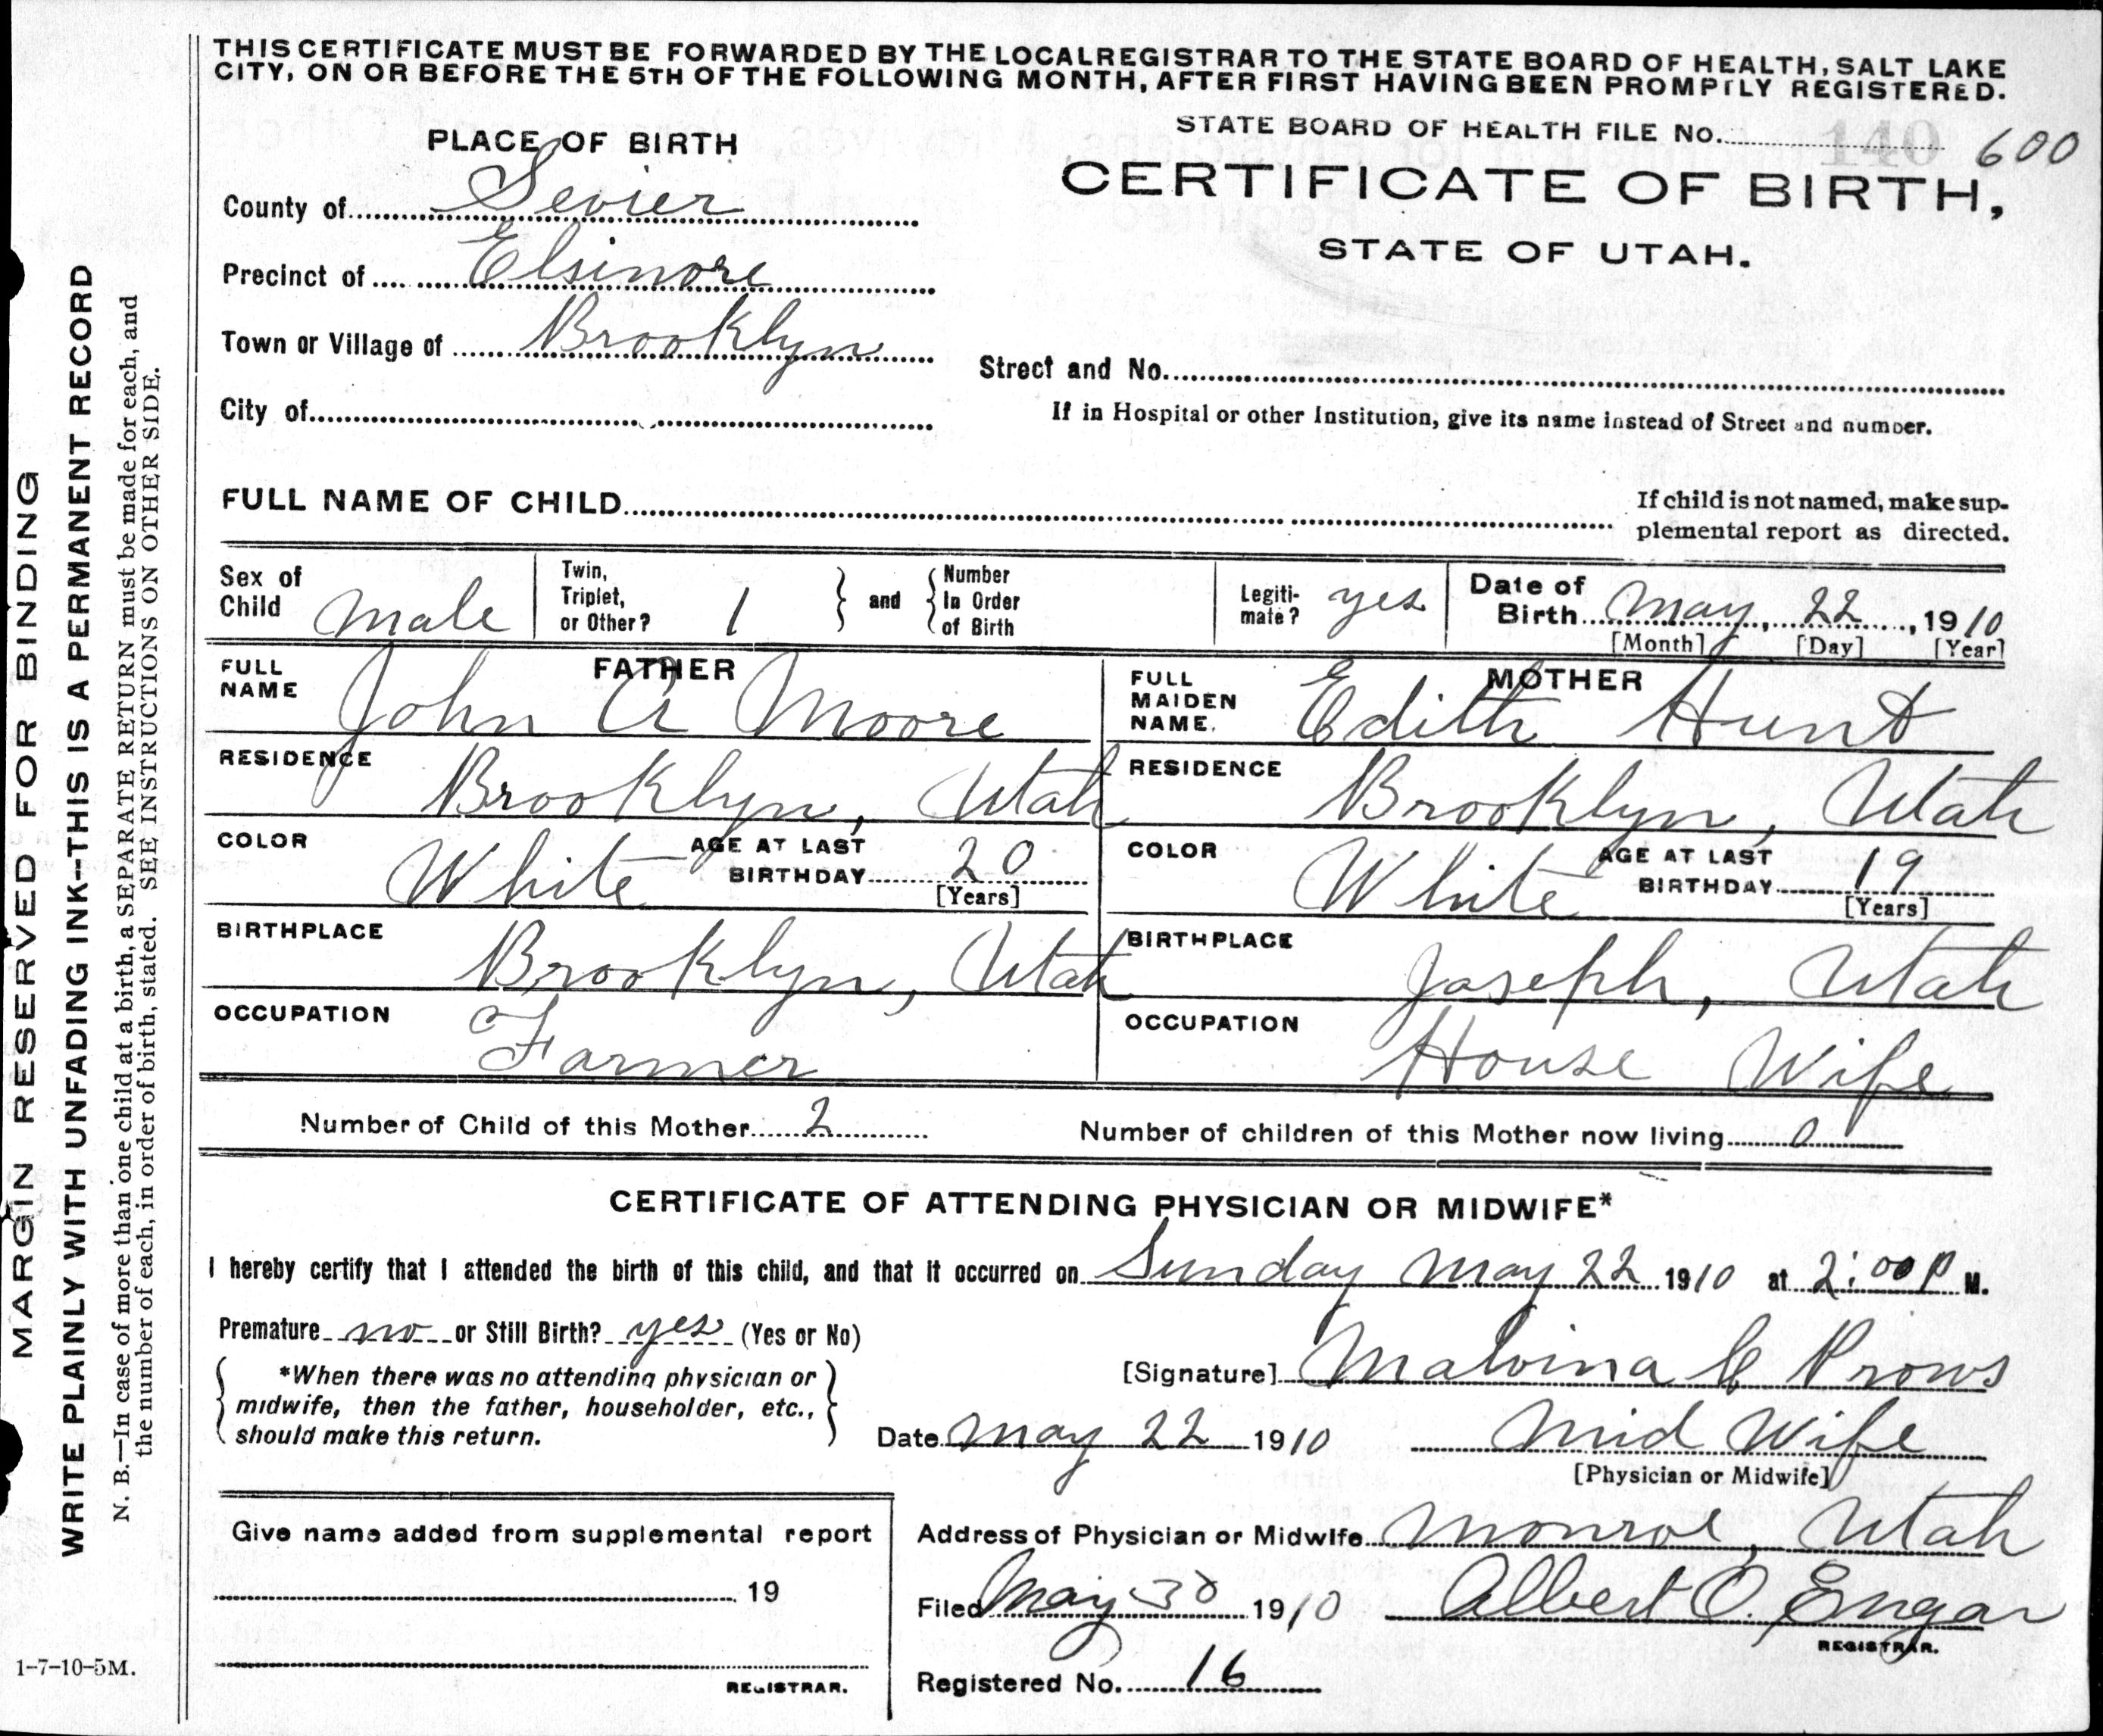 THIS CERTIFICATE MUST BE FORWARDED BY THE LOCAL REGISTRAR TO THE STATE BOARD OF HEALTH, SALT LAKE
CITY, ON OR BEFORE THE 5TH OF THE FOLLOWING MONTH, AFTER FIRST HAVING BEEN PROMPTLY REGISTERED.
STATE BOARD OF HEALTH FILE No. 140 600
PLACE OF BIRTH
CERTIFICATE OF BIRTH,
STATE OF UTAH.
County of Sevier
Precinct of Elsinore
Town or Village of Brooklyn
Street and No.
City of
If in Hospital or other Institution, give its name instead of Street and number.
FULL NAME OF CHILD
If child is not named, make sup-
plemental report as directed.
Sex of Child male
Twin, Triplet, or Other? 1 and Number In Order of Birth
Legiti-mate? yes
Date of Birth May, 22, 1910
[Month] [Day] [Year]
FATHER
FULL NAME John A Moore
MOTHER
FULL MAIDEN NAME. Edith Hunt
RESIDENCE Brooklyn, Utah
RESIDENCE Brooklyn, Utah
COLOR White AGE AT LAST BIRTHDAY 20 [Years]
COLOR White AGE AT LAST BIRTHDAY 19 [Years]
BIRTHPLACE Brooklyn, Utah
BIRTHPLACE Joseph, Utah
OCCUPATION Farmer
OCCUPATION House Wife
Number of Child of this Mother 2
Number of children of this Mother now living 0
CERTIFICATE OF ATTENDING PHYSICIAN OR MIDWIFE*
I hereby certify that I attended the birth of this child, and that it occurred on Sunday May 22 1910 at 2:00 P M.
Premature no or Still Birth? yes (Yes or No)
*When there was no attending physician or
midwife, then the father, householder, etc.,
should make this return.
[Signature] Malvina C Prows
Date May 22 1910 Mid Wife
[Physician or Midwife]
Address of Physician or Midwife Monroe, Utah
Filed May 30 1910 Albert O. Engar
REGISTRAR.
Registered No. 16
Give name added from supplemental report
19
REGISTRAR.
1-7-10-5M.
MARGIN RESERVED FOR BINDING
WRITE PLAINLY WITH UNFADING INK--THIS IS A PERMANENT RECORD
N. B.—In case of more than one child at a birth, a SEPARATE RETURN must be made for each, and
the number of each, in order of birth, stated. SEE INSTRUCTIONS ON OTHER SIDE.